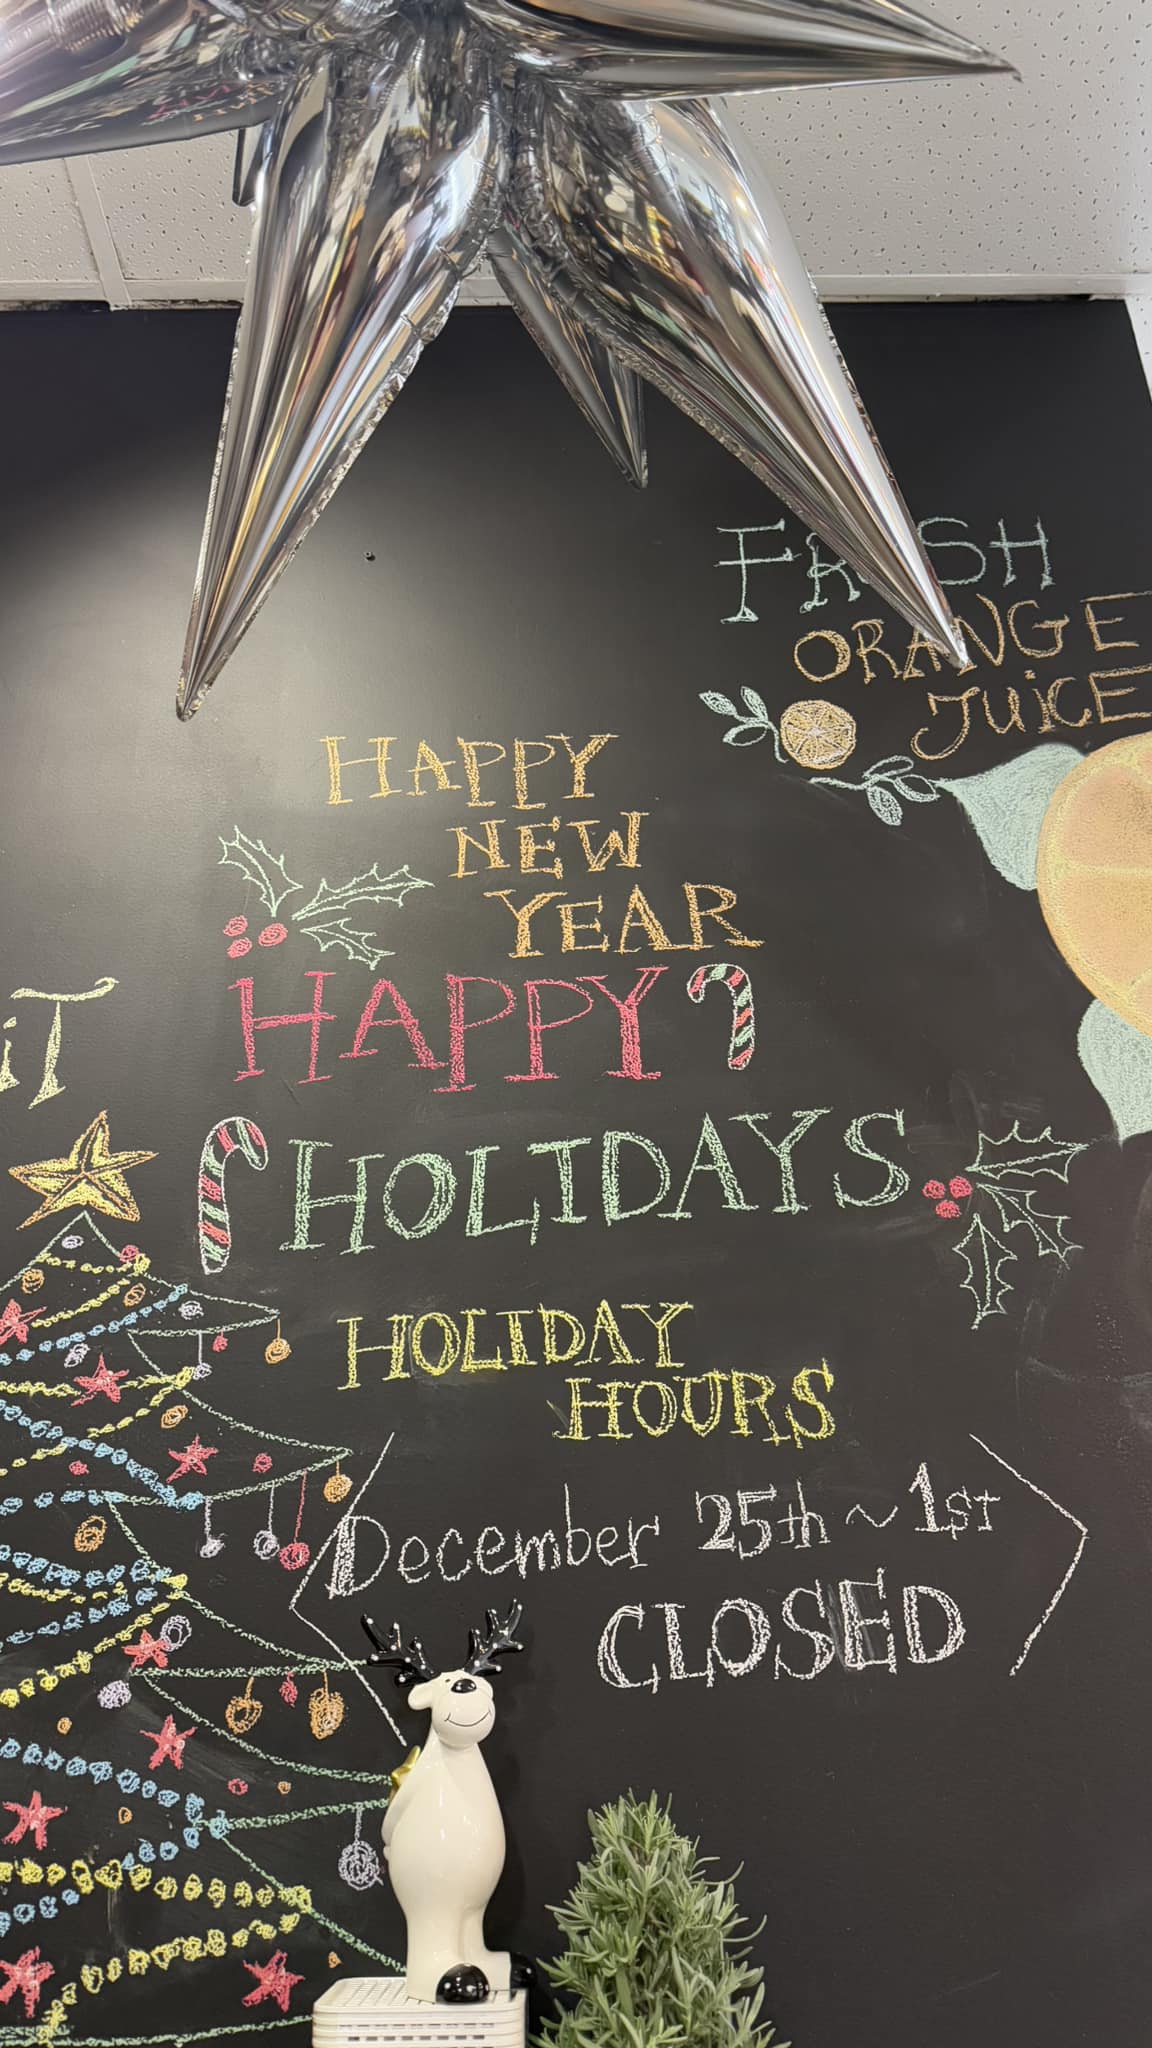 FRESH
ORANGE
JUiCE
HAPPY
NEW
YEAR
HAPPY
HOLIDAYS
iT
HOLIDAY
HOURS
December 25th ~ 1st
CLOSED